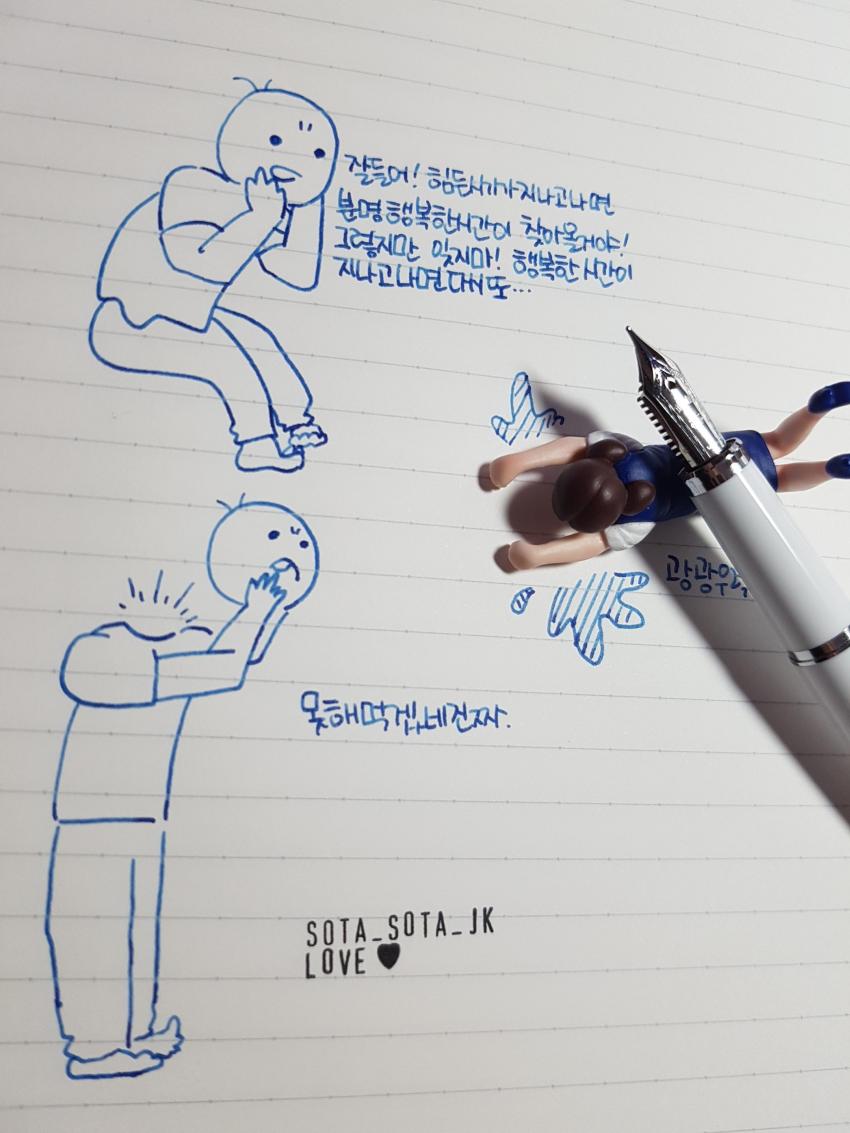 잘들어! 힘든시기가지나고나면
분명행복한시간이 찾아올거야!
그렇지만 잊지마! 행복한시간이
지나고나면다시또...
광광우럭
못해먹겠네진짜.
SOTA_SOTA_JK
LOVE ♥